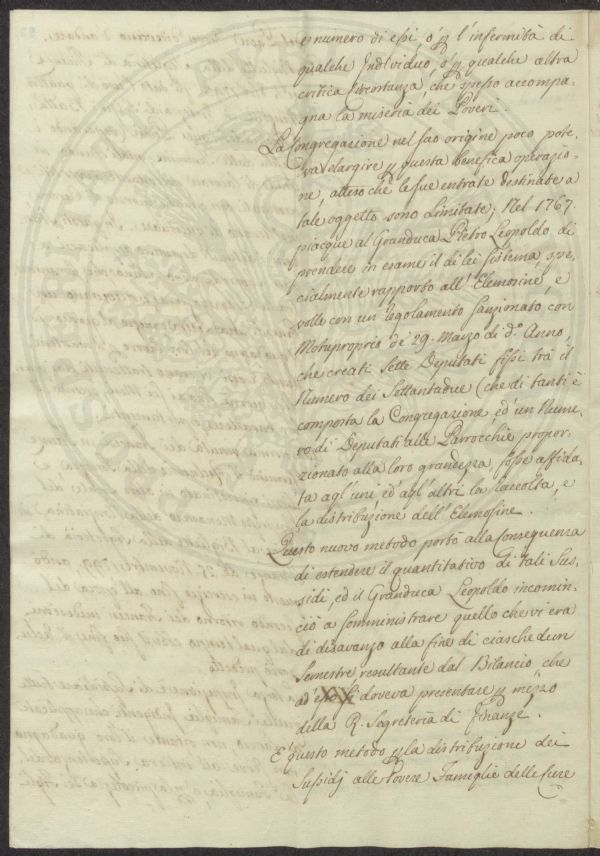 e numero di essi o p l'infermità di
qualche Individuo, o p qualche altra
critica Circostanza, che spesso accompa-
gna la miseria dei Poveri.
La Congregazione nel suo origine poco pote-
va elargire p questa benefica operazio-
ne, atteso che le sue entrate destinate a
tale oggetto sono limitate; Nel 1767.
piacque al Granduca Pietro Leopoldo di
prendere in esame il di lei sistema, spe-
cialmente rapporto all'Elemosine, e
volle con un regolamento sanzionato con
Motuproprio de' 29. Marzo di d.º Anno,
che creati Sette Deputati fissi trà il
Numero dei Settantadue (che di tanti è
composta la Congregazione ed un Nume-
ro di Deputati alle Parrocchie propor-
zionato alla loro grandezza, fosse affida-
ta agl'uni ed agl'altri la raccolta, e
la distribuzione dell'Elemosine.
Questo nuovo metodo portò alla conseguenza
di estendere il quantitativo di tali Sus-
sidi, ed il Granduca Leopoldo incomin-
ciò a somministrare quello che vi era
di disavanzo alla fine di ciaschedun
Semestre resultante dal Bilancio, che
ad doveva presentare p mezzo
della R. Segreteria di Finanze.
E' questo metodo p la distribuzione dei
Sussidj alle Povere Famiglie delle Cure